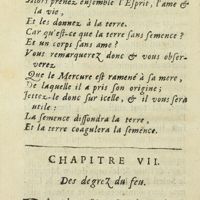 Alors prenez ensemble l'Esprit, l'ame &
la vie,
Et les donnez à la terre.
Car qu'est-ce que la terre sans semence ?
Et un corps sans ame ?
Vous remarquerez donc & vous obser-
verez
Que le Mercure est ramené à sa mere,
De laquelle il a pris son origine ;
Jettez-le donc sur icelle, & il vous sera
utile :
La semence dissoudra la terre,
Et la terre coagulera la semence.
CHAPITRE VII.
Des degrez du feu.